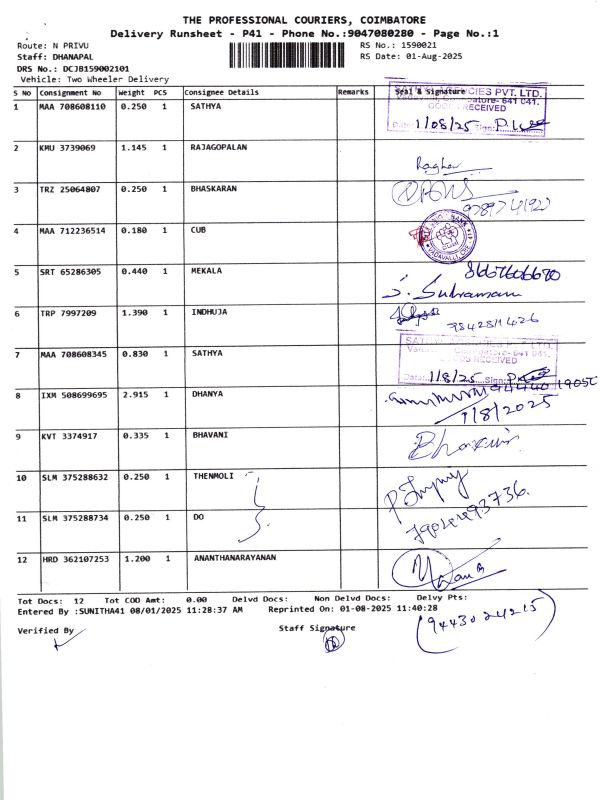 THE PROFESSIONAL COURIERS, COIMBATORE
Delivery Runsheet - P41 - Phone No.:9047080280 - Page No.:1
Route: N PRIVU
RS No.: 1590021
Staff: DHANAPAL
RS Date: 01-Aug-2025
DRS No.: DCJB159002101
Vehicle: Two Wheeler Delivery
S No Consignment No Weight PCS Consignee Details Remarks Seal & Signature
1 MAA 708608110 0.250 1 SATHYA
PVT. LTD.
641 041.
RECEIVED
Date: 1/08/25 Sign:
2 KMU 3739069 1.145 1 RAJAGOPALAN
Raghav
3 TRZ 25064807 0.250 1 BHASKARAN
4 MAA 712236514 0.180 1 CUB
5 SRT 65286305 0.440 1 MEKALA
8667606670
S. Subramani
6 TRP 7997209 1.390 1 INDHUJA
9842811426
7 MAA 708608345 0.830 1 SATHYA
641 041.
RECEIVED
Date: 1/8/25 Sign:
8 IXM 508699695 2.915 1 DHANYA
1/8/2025
9 KVT 3374917 0.335 1 BHAVANI
10 SLM 375288632 0.250 1 THENMOLI
11 SLM 375288734 0.250 1 DO
12 HRD 362107253 1.200 1 ANANTHANARAYANAN
Tot Docs: 12 Tot COD Amt: 0.00 Delvd Docs: Non Delvd Docs: Delvy Pts:
Entered By :SUNITHA41 08/01/2025 11:28:37 AM Reprinted On: 01-08-2025 11:40:28
(9443024215)
Verified By
Staff Signature